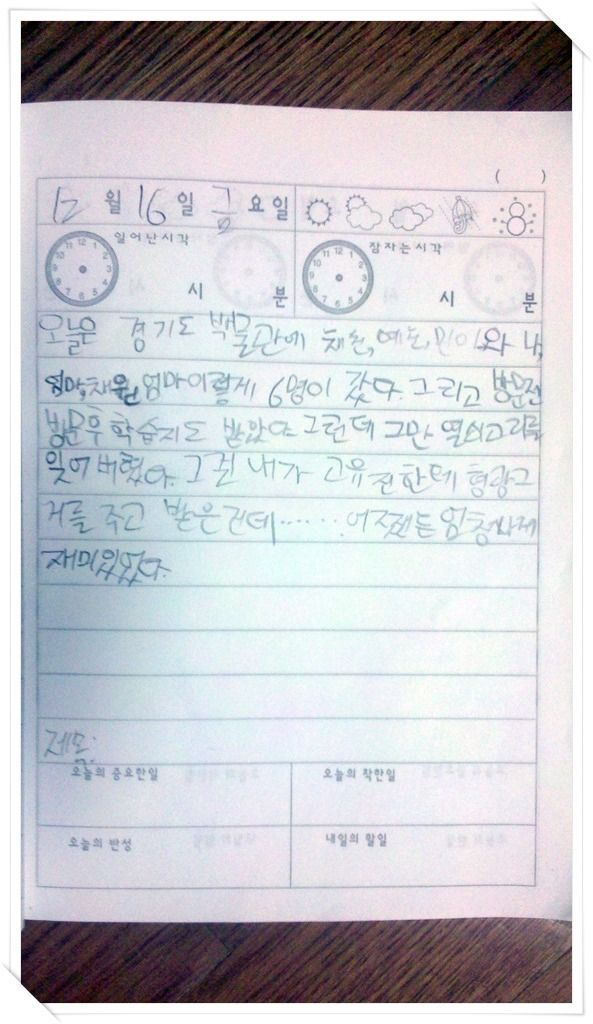 ( )
12 월 16 일 금 요일
일어난시각 잠자는시각
시 분 시 분
오늘은 경기도 박물관에 채원, 예은, 민이와 나,
엄마, 채원 엄마 이렇게 6명이 갔다. 그리고 방문전
방문후 학습지도 받았다. 그런데 그만 열쇠고리를
잊어 버렸다. 그건 내가 고유 전한테 형광그
거를 주고 받은건데......어쨌든 엄청나게
재미있었다.
제목:
오늘의 중요한일 오늘의 착한일
오늘의 반성 내일의 할일